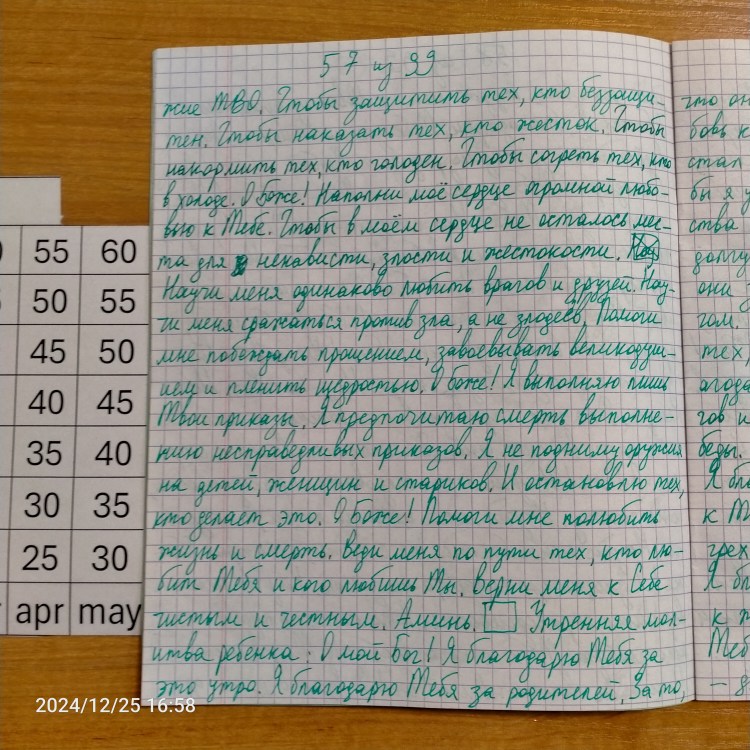 57 из 99
жие ТВО. Чтобы защитить тех, кто беззащи-
тен. Чтобы наказать тех, кто жесток. Чтобы
накормить тех, кто голоден. Чтобы согреть тех, кто
в холоде. О Боже! Наполни моё сердце огромной любо-
вью к Тебе. Чтобы в моём сердце не осталось мес-
та для ненависти, злости и жестокости.
Научи меня одинаково любить врагов и друзей. Нау-
чи меня сражаться против зла, а не злодеев. Помоги
мне побеждать прощением, завоевывать великодуш-
ием и пленить щедростью. О Боже! Я выполняю лишь
Твои приказы. Я предпочитаю смерть выполне-
нию несправедливых приказов. Я не подниму оружия
на детей, женщин и стариков. И остановлю тех,
кто делает это. О Боже! Помоги мне полюбить
жизнь и смерть. Веди меня по пути тех, кто лю-
бит Тебя и кого любишь Ты. Верни меня к Себе
чистым и честным. Аминь. Утренняя мол-
итва ребенка: О мой Бог! Я благодарю Тебя за
это утро. Я благодарю Тебя за родителей. За то,
что он
бовь к
стал
бы я у
ства
долгу
они
гом.
тех,
агода
гов и
беды.
Я бла
к Т
грех
Я бл
к ж
Теб
55 60
50 55
45 50
40 45
35 40
30 35
25 30
apr may
2024/12/25 16:58